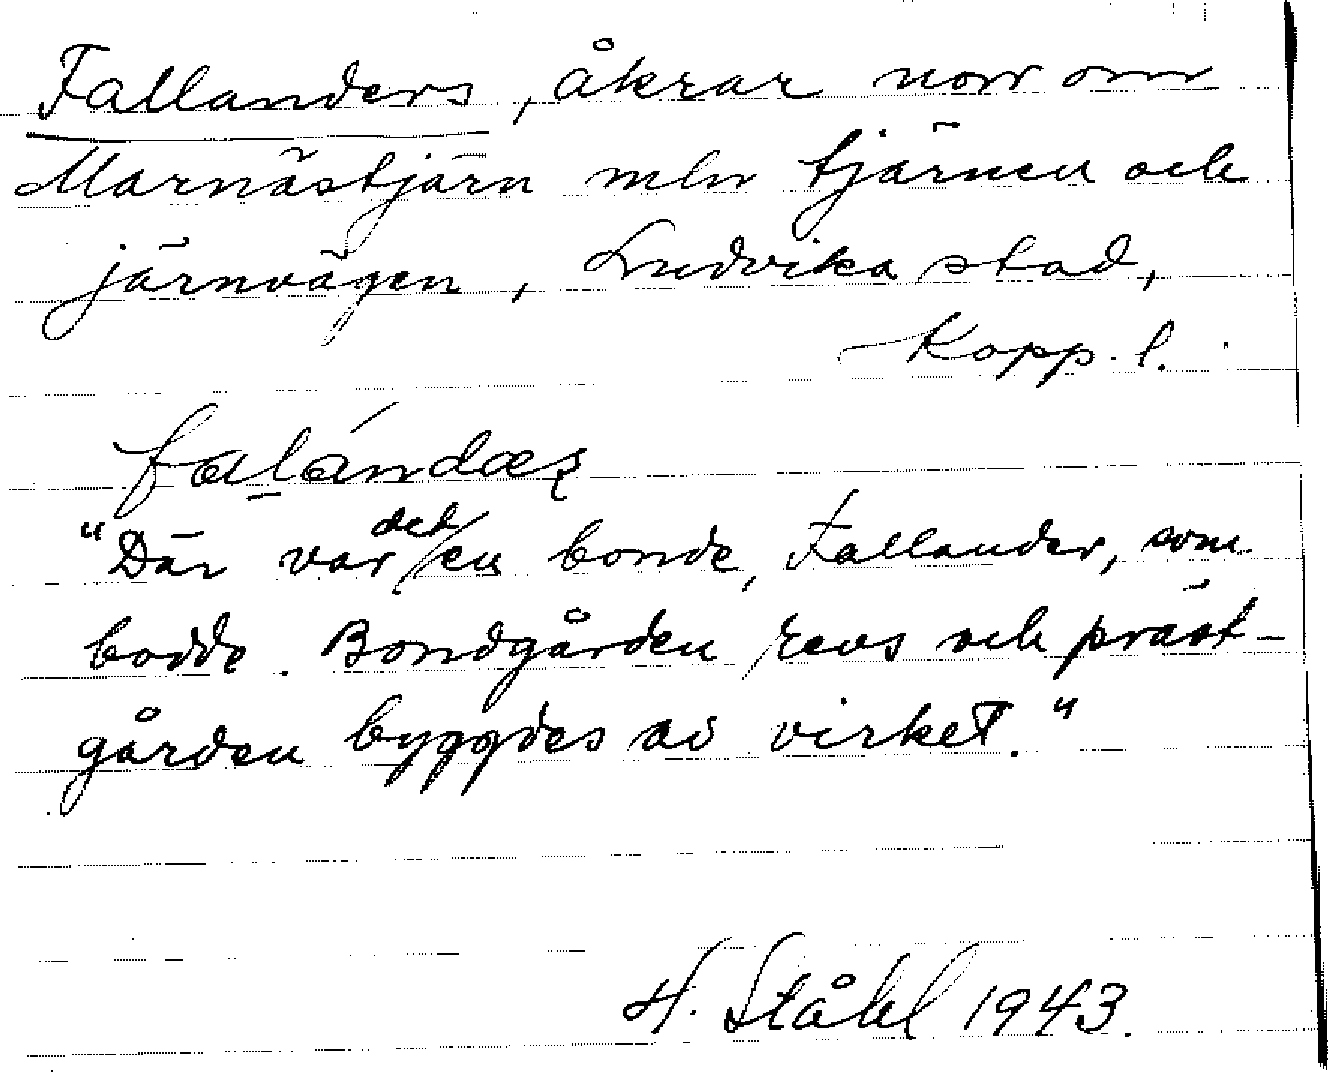 Fallanders, åkrar norr om
Marnästjärn mln tjärnen och
järnvägen, Ludvika stad,
Kopp. l.
falándæʂ
"Där var det en bonde, Fallander, som
bodde. Bondgården revs och präst-
gården byggdes av virket."
H. Ståhl 1943.